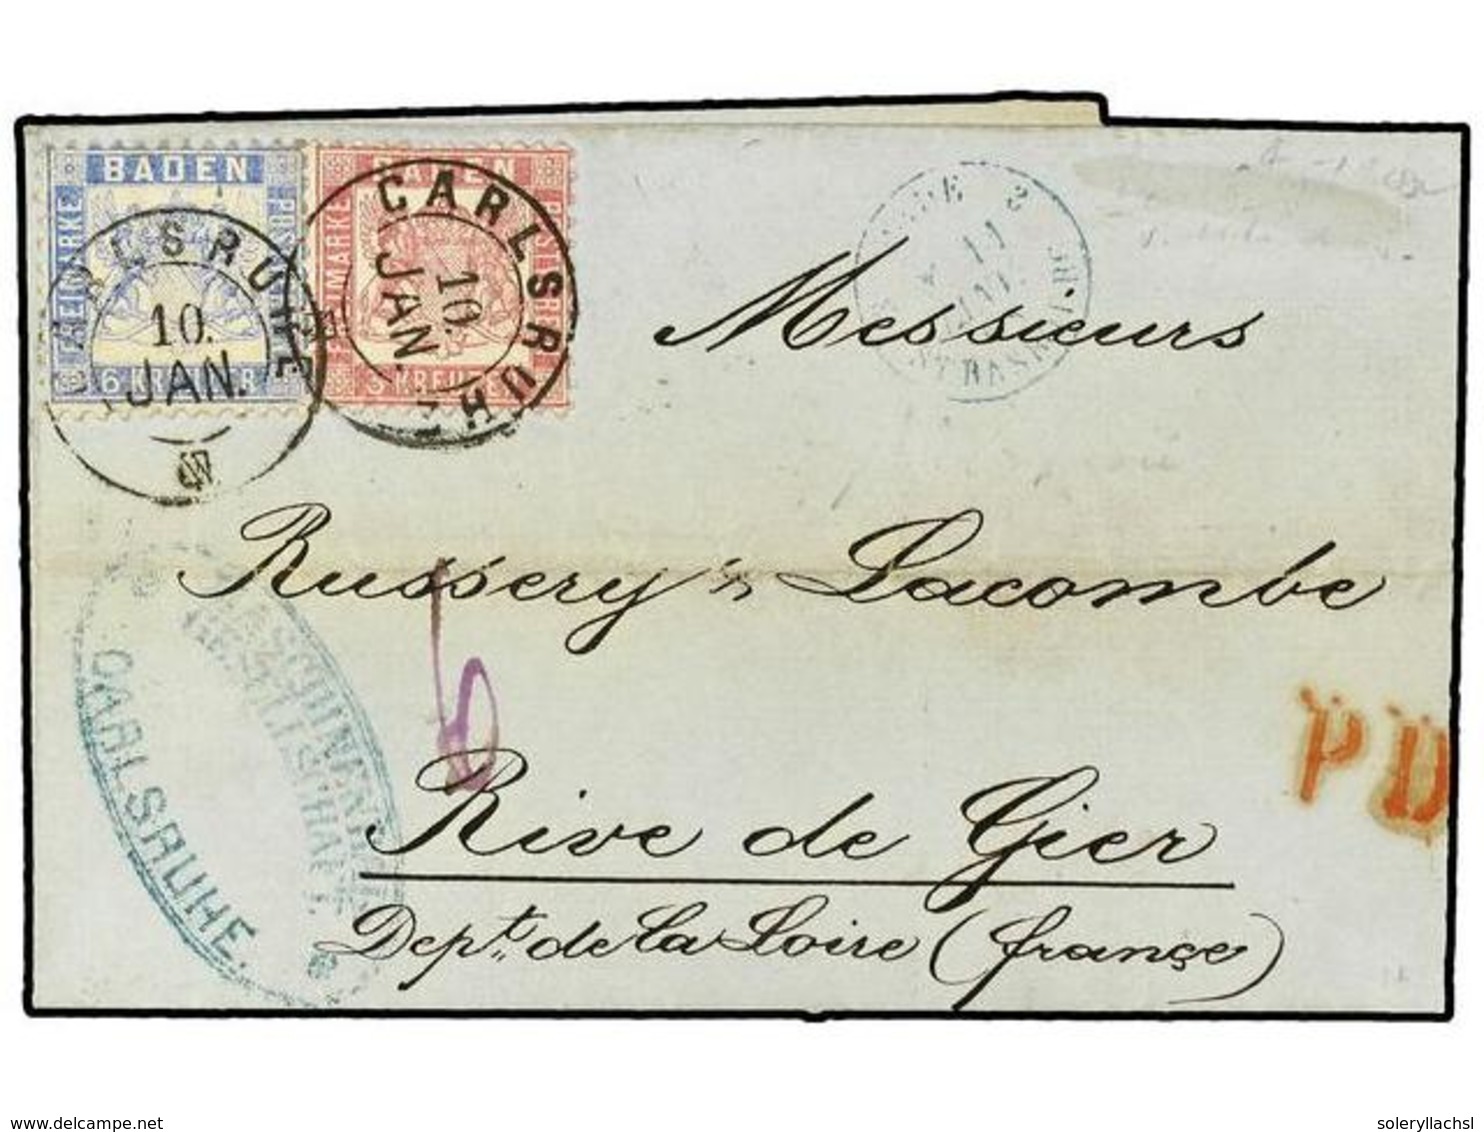 BADEN
FREIMARKE
6 KREUZER
CARLSRUHE
10.
JAN.
BADEN
FREIMARKE
3 KREUZER
CARLSRUHE
10.
JAN.
3
11
JANV.
STRASB
Messieurs
Russery & Lacombe
6
Rive de Gier
Dept. de la Loire (françe)
PD
MASCHINENBAU
GESELLSCHAFT
CARLSRUHE.
www.delcampe.net
soleryllachsl